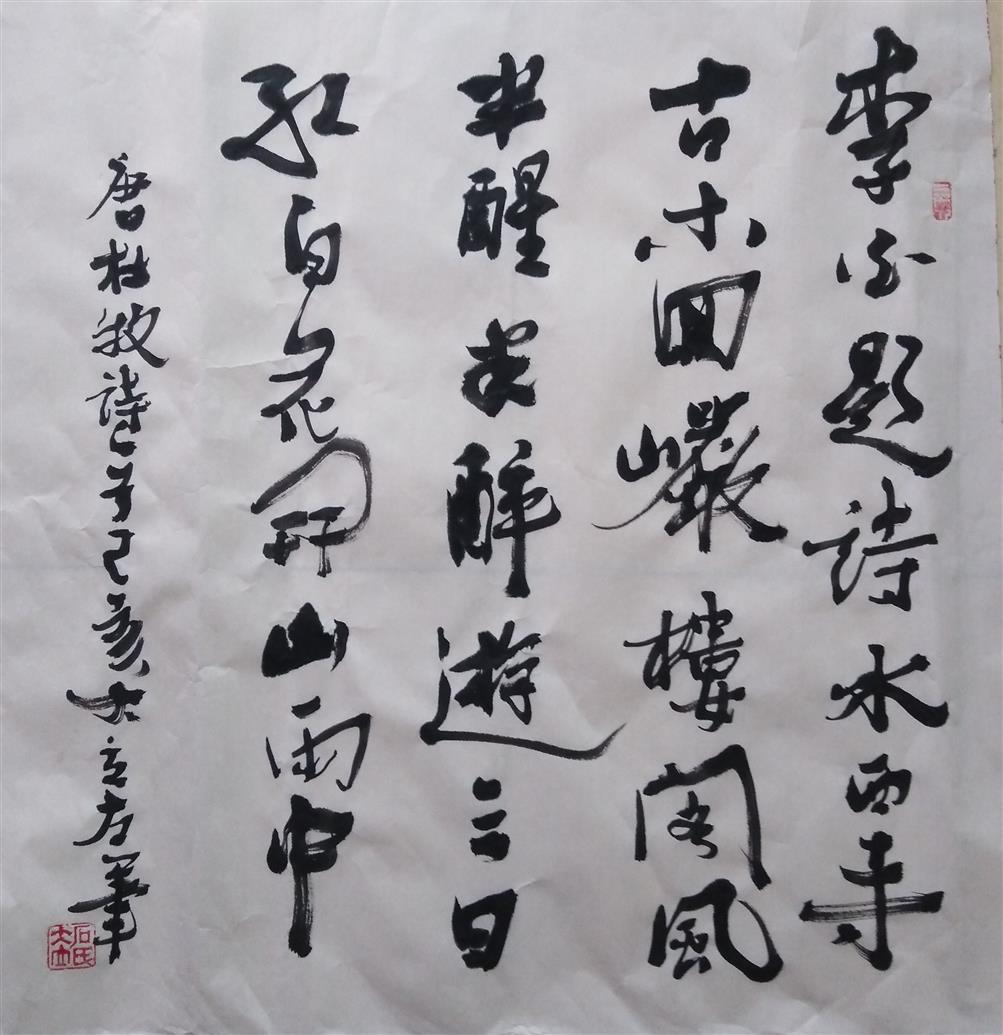 李白題詩水西寺
古木回巖樓閣風
半醒半醉遊三日
紅白花開山雨中
唐杜牧詩一首己亥大立左筆
石氏大立